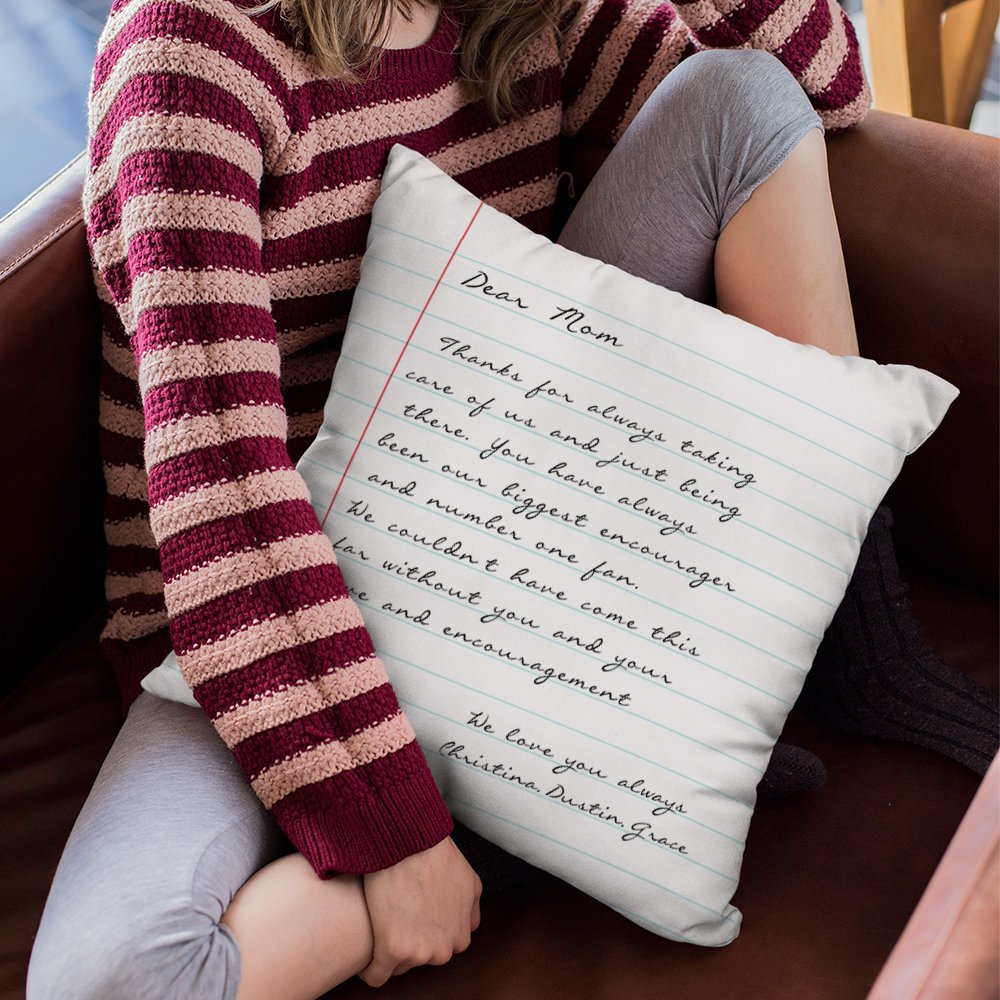 Dear Mom
Thanks for always taking
care of us and just being
there. You have always
been our biggest encourager
and number one fan.
We couldn't have come this
far without you and your
and encouragement
We love you always
Christina, Dustin, Grace